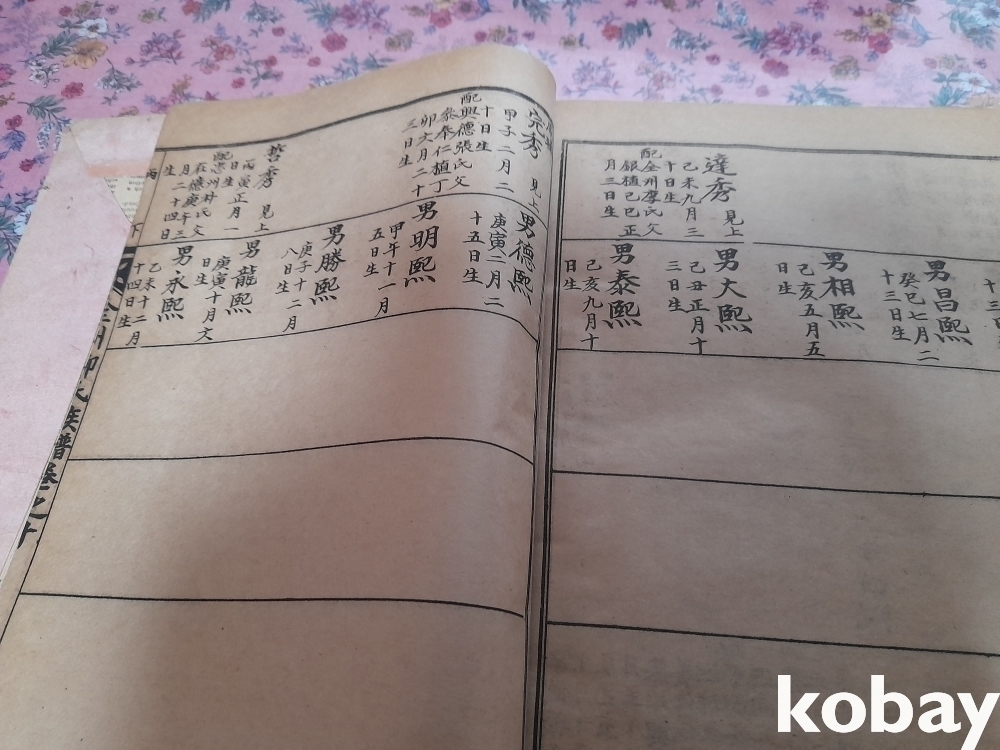 達秀
見上
己未九月三
十日生
配全州李氏父
銀植己巳正
月三日生
十三
男昌熙
癸巳七月二
十三日生
男相熙
己亥五月五
日生
男大熙
己丑正月十
三日生
男泰熙
己亥九月十
日生
完秀
見上
甲子二月二
十日生
配興德張氏父
參奉仁植丁
卯六月二十
三日生
秀
見上
丙寅正月一
日生
配忠州朴氏父
在應庚午三
月二十四日
生
男德熙
庚寅二月二
十五日生
男明熙
甲午十一月
五日生
男勝熙
庚子十二月
八日生
男龍熙
庚寅十月六
日生
男永熙
乙未十二月
十四日生
氏族譜卷之十
kobay